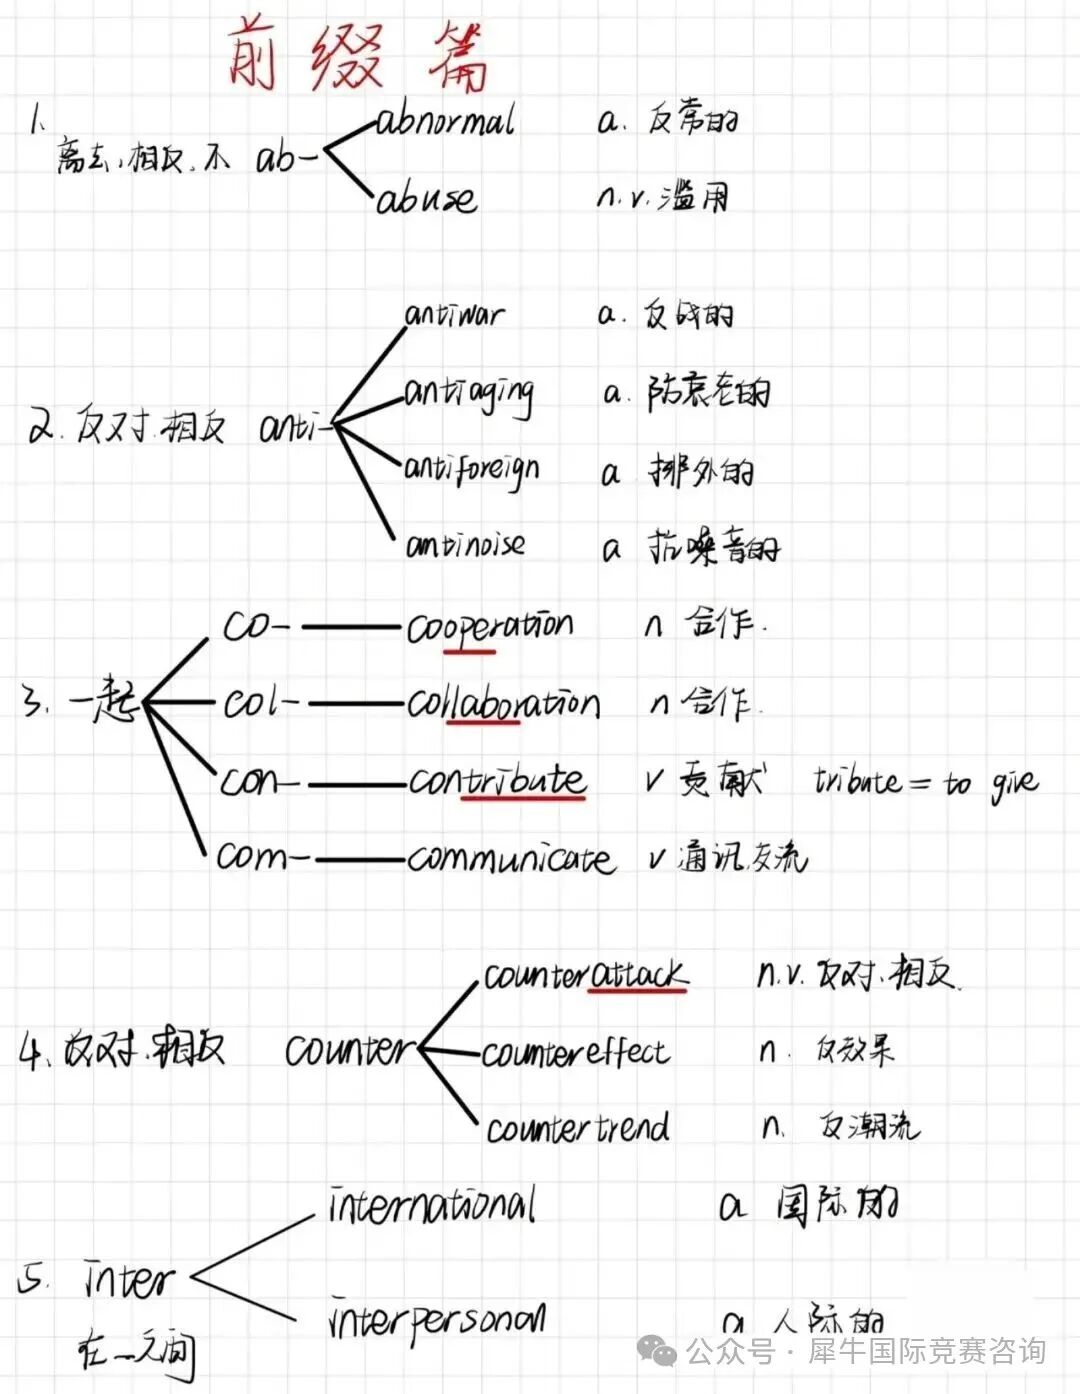 前缀篇
1.
离去,相反,不 ab- abnormal a. 反常的
abuse n.v. 滥用
antiwar a. 反战的
antiaging a. 防衰老的
2. 反对.相反 anti-
antiforeign a 排外的
antinoise a 抗噪音的
co- cooperation n 合作.
3. 一起 col- collaboration n 合作.
con- contribute v 贡献 tribute = to give
com- communicate v 通讯,交流
counterattack n.v. 反对.相反.
4. 反对.相反 counter countereffect n. 反效果
countertrend n. 反潮流
international a 国际的
5. inter
interpersonal a 人际的
在…之间
公众号·犀牛国际竞赛咨询